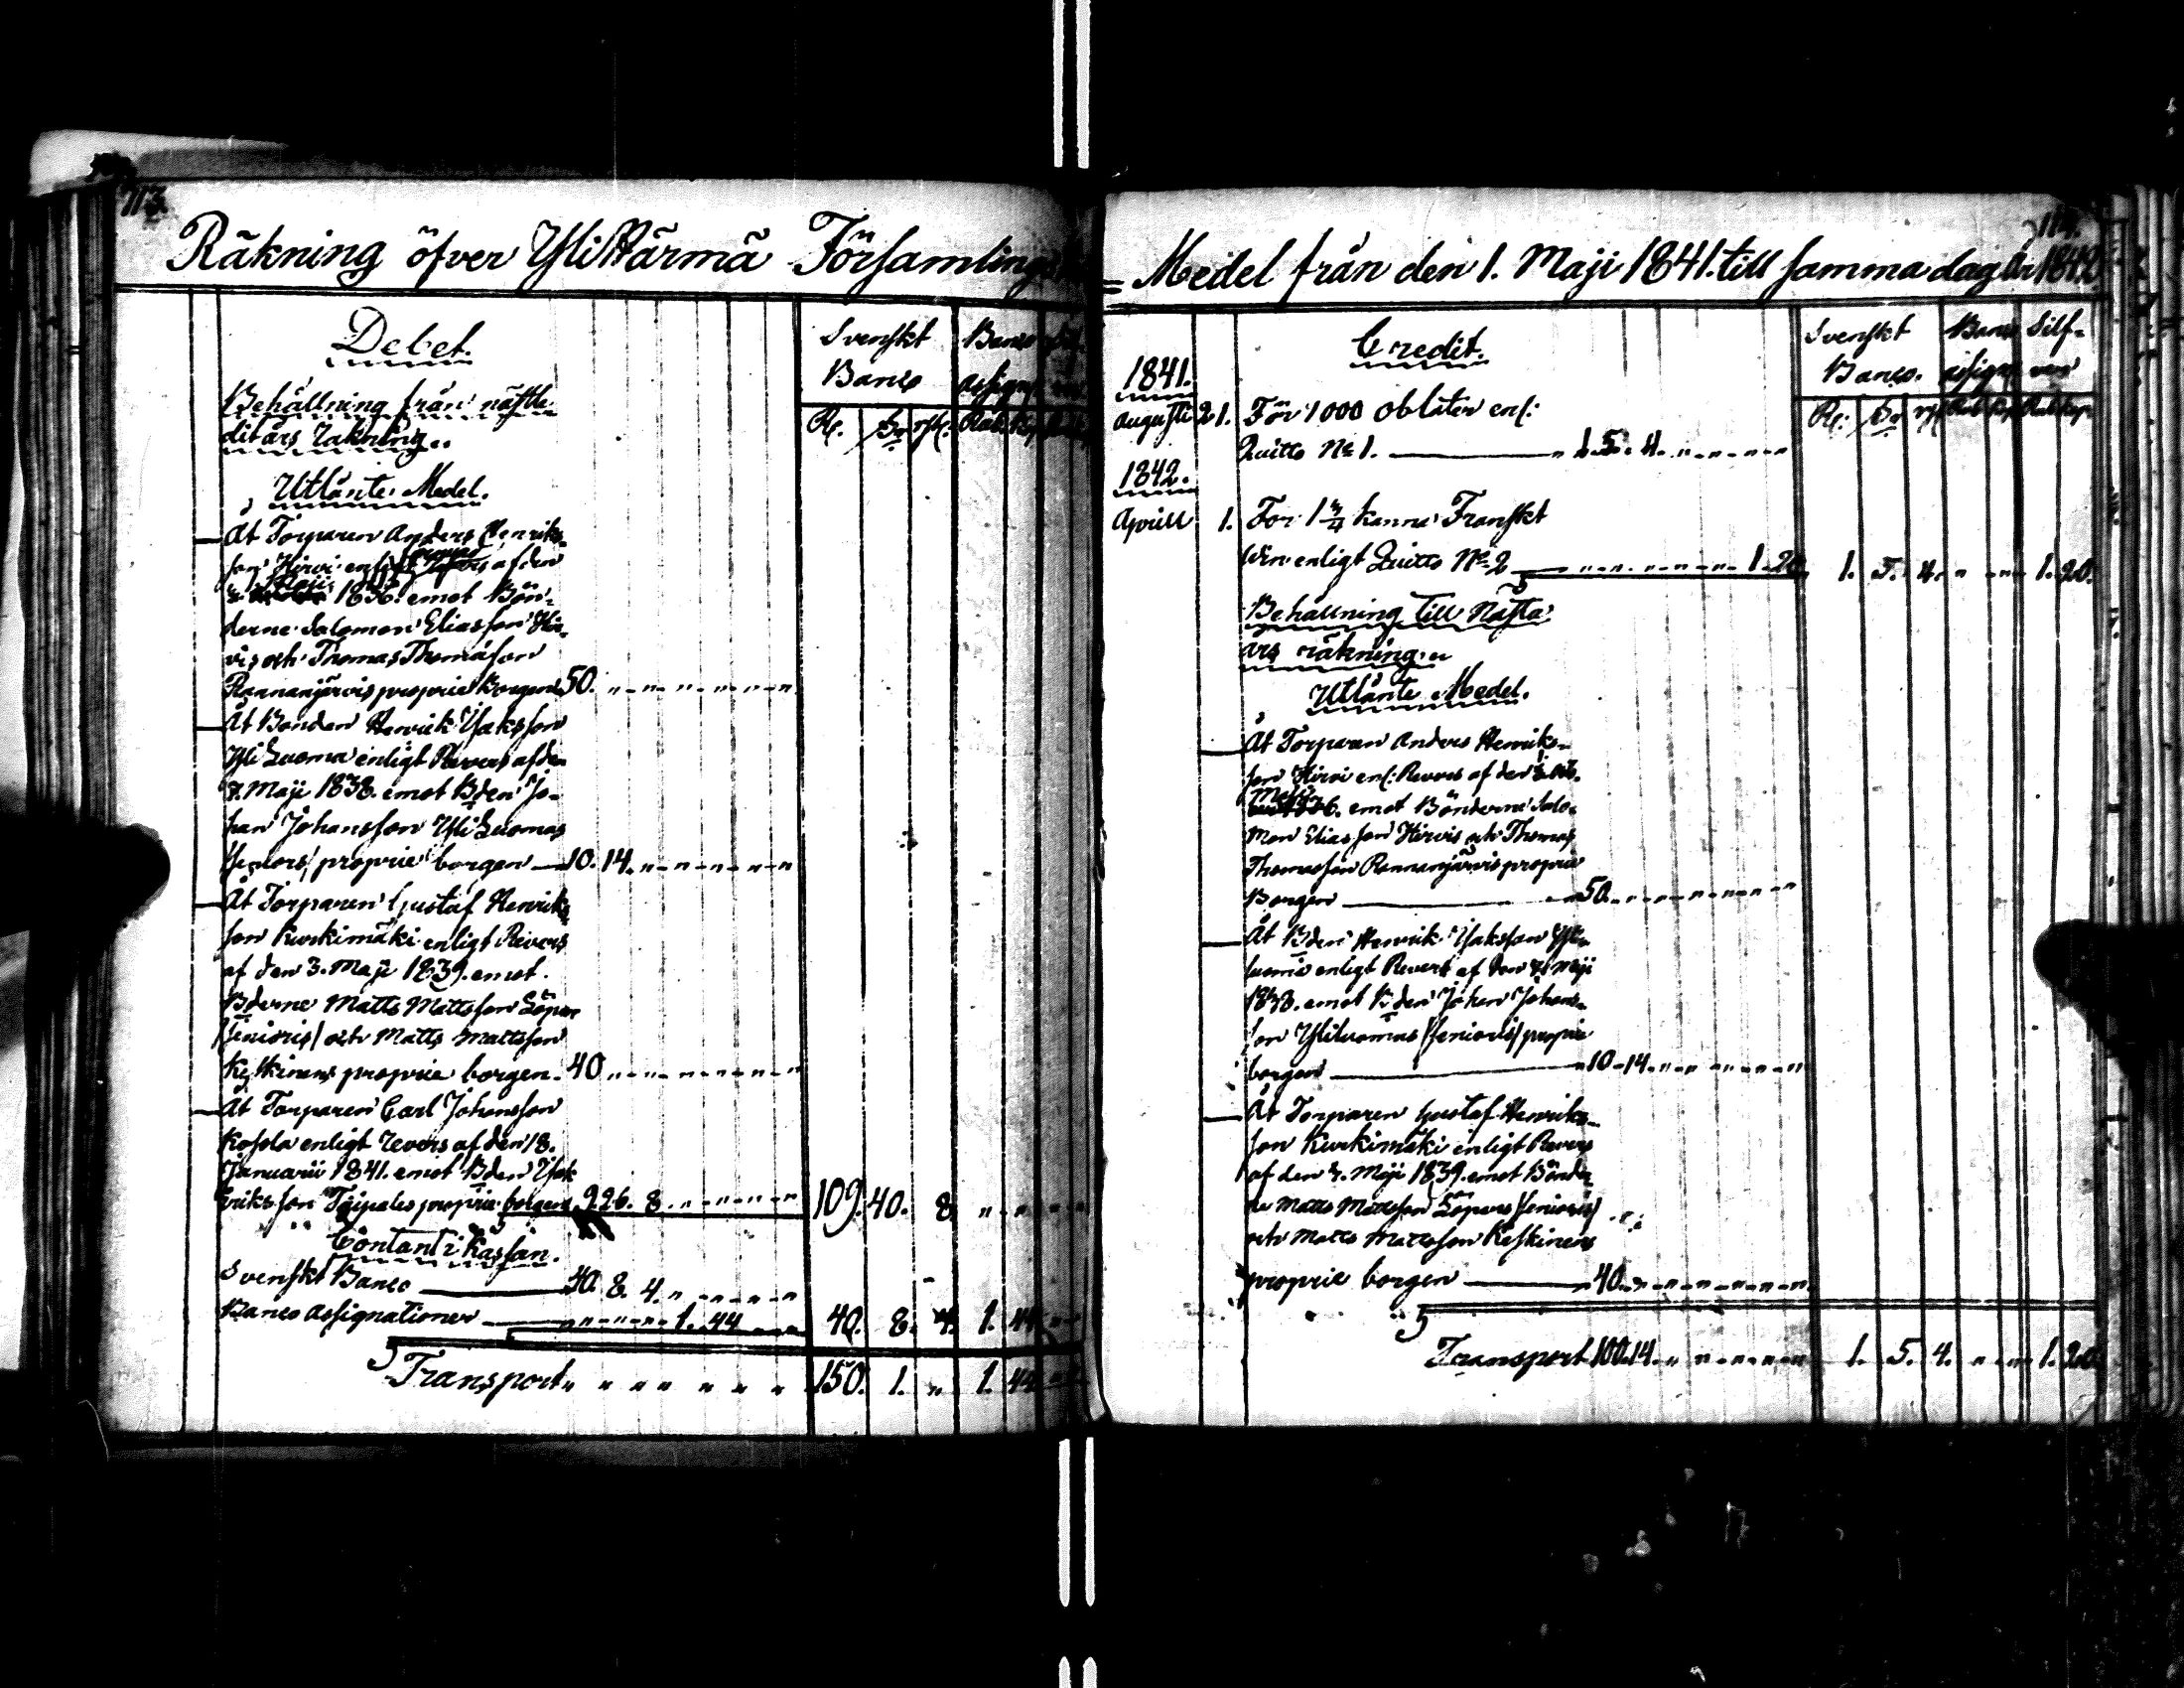 113.
Räkning öfver Ylikärmä Församlings
Debet.
Svenskt Banco
Banco assign
Behållning från nästle-
dit års räkning.
Rd. Sk rst. Rub. Kop
Utlänte Medel.
Åt Torparen Anders Henriks-
son Hirvi enligt Revers af den
1. Maji 1836. emot Bön-
derne Salomon Eliasson Hir-
vis och Thomas Thomasson
Rannanjärvis proprie borgen 50. " " " " " " "
Åt Bonden Henrik Isaksson
Yli Luoma enligt Revers af den
7. Maji 1838. emot Bden Jo-
han Johansson Yli Luomas
Seniors/ proprie borgen 10. 14. " " " " " "
Åt Torparen Gustaf Henriks
son Kurkimäki enligt Revers
af den 3. Maji 1839. emot
Bderne Matts Mattsson Löpars
/Senioris/ och Matts Mattsson
Keskinens proprie borgen. 40 " " " " " " "
Åt Torparen Carl Johansson
Kosola enligt revers af den 18.
Januarii 1841. emot Bden Isak
Eriksson Taipales proprie borgen 9 26. 8. " " " " " 109. 40. 8 " " "
Contant i Kassan.
Svenskt Banco 40. 8. 4. " " " " "
Banco Assignationer " " " " 1. 44 " " 40. 8. 4. 1. 44
Transport " " " " " " " 150. 1. " 1. 44
114.
= Medel från den 1. Maji 1841. till samma dag år 1842
Credit.
Svenskt Banco.
Banco assign
Silf-
ver
1841.
Augusti 21. För 1000 oblater enl:
Rd: Sk rst Rub Kop Rub Kop.
Quitto No 1. " 1. 5. 4. " " " " "
1842.
Aprill 1. För 1 3/4 kanna Franskt
Win enligt Quitto No 2 " " " " " " 1. 20. 1. 5. 4. " " " 1. 20.
Behållning till Nästa
års räkning.
Utlänte Medel.
Åt Torparen Anders Henriks-
son Hirvi enl: Revers af den 1
Maji 1836. emot Bönderne Salo-
mon Eliasson Hirvis och Thomas
Thomasson Rannanjärvis proprie
Borgen 50. " " " " " " "
Åt Bden Henrik Isaksson Yli-
luoma enligt Revers af den 7. Maji
1838. emot Bden Johan Johans-
son Yliluomas /Senioris/ proprie
borgen 10. 14. " " " " " "
Åt Torparen Gustaf Henriks-
son Kurkimäki enligt Revers
af den 3. Maji 1839. emot Bönder
ne Matts Mattsson Löpars /Senioris/
och Matts Mattsson Keskinens
proprie borgen 40. " " " " " " "
Transport 100. 14. " " " " " " 1. 5. 4. " " " 1. 20.